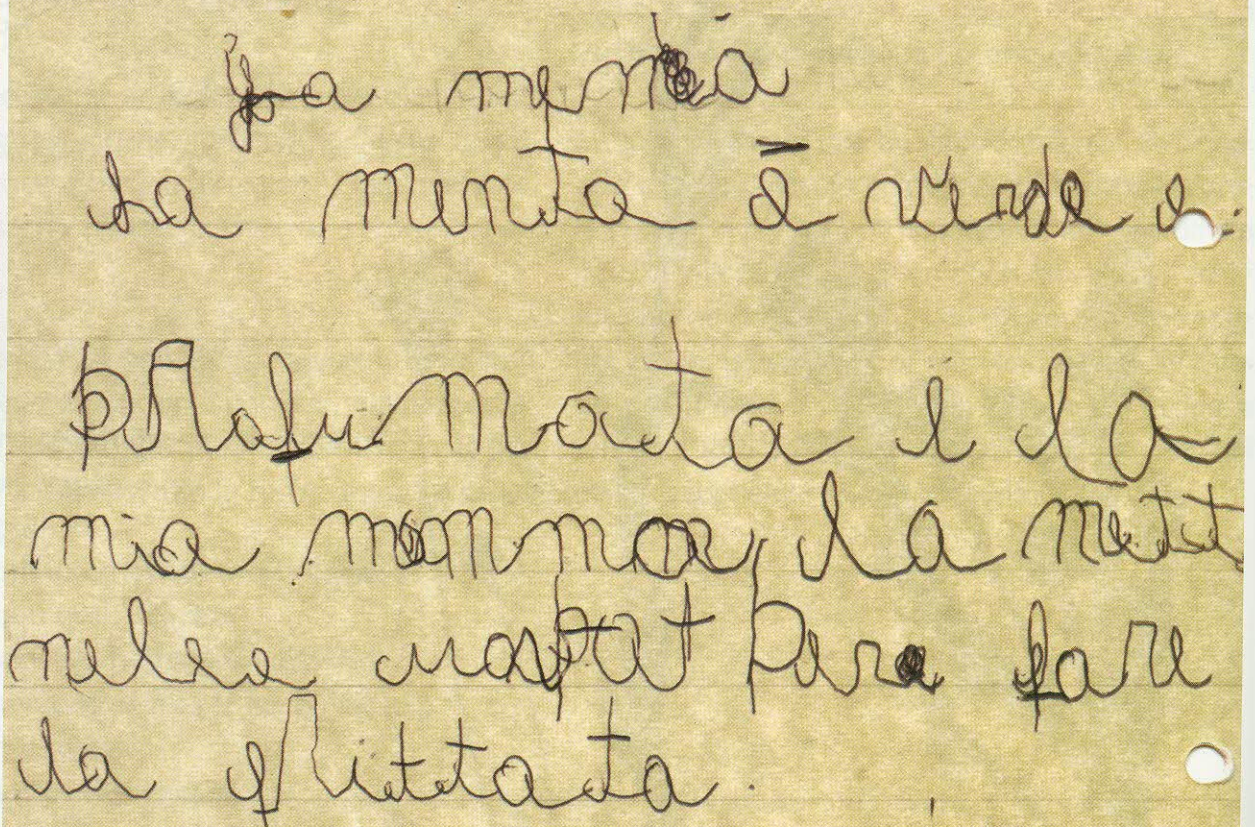 La menta
La menta è verde e
profumata e la
mia mamma la mett
nelle uova per fare
la frittata.